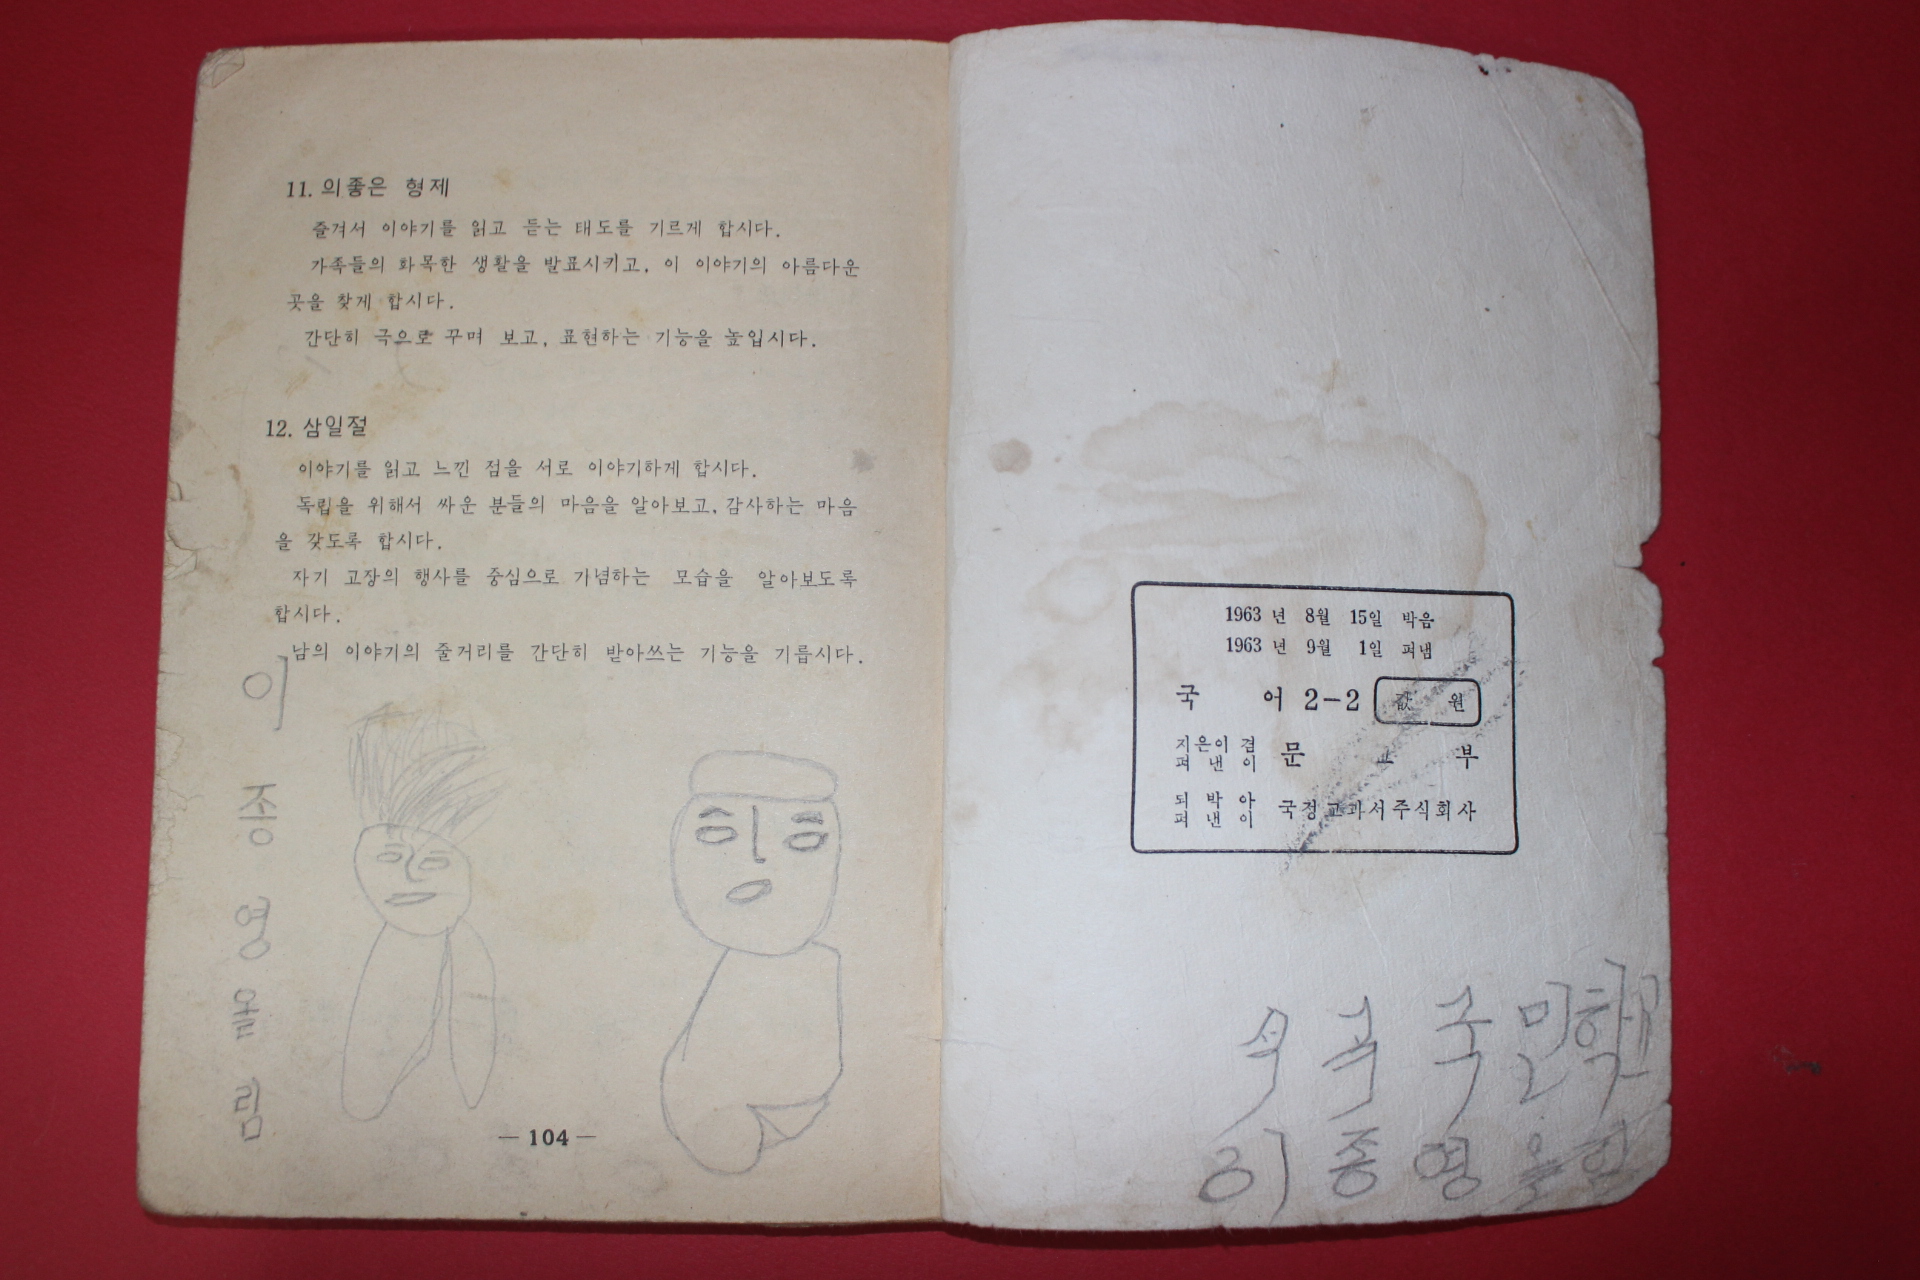 11. 의좋은 형제
즐겨서 이야기를 읽고 듣는 태도를 기르게 합시다.
가족들의 화목한 생활을 발표시키고, 이 이야기의 아름다운
곳을 찾게 합시다.
간단히 극으로 꾸며 보고, 표현하는 기능을 높입시다.
12. 삼일절
이야기를 읽고 느낀 점을 서로 이야기하게 합시다.
독립을 위해서 싸운 분들의 마음을 알아보고, 감사하는 마음
을 갖도록 합시다.
자기 고장의 행사를 중심으로 가념하는 모습을 알아보도록
합시다.
남의 이야기의 줄거리를 간단히 받아쓰는 기능을 기릅시다.
이종영올림
— 104 —
1963 년 8월 15일 박음
1963 년 9월 1일 펴냄
국 어 2－2 값 원
지은이 겸
펴 낸 이 문 교 부
되 박 아
펴 낸 이 국정교과서주식회사
국 민 학교
이 종 영